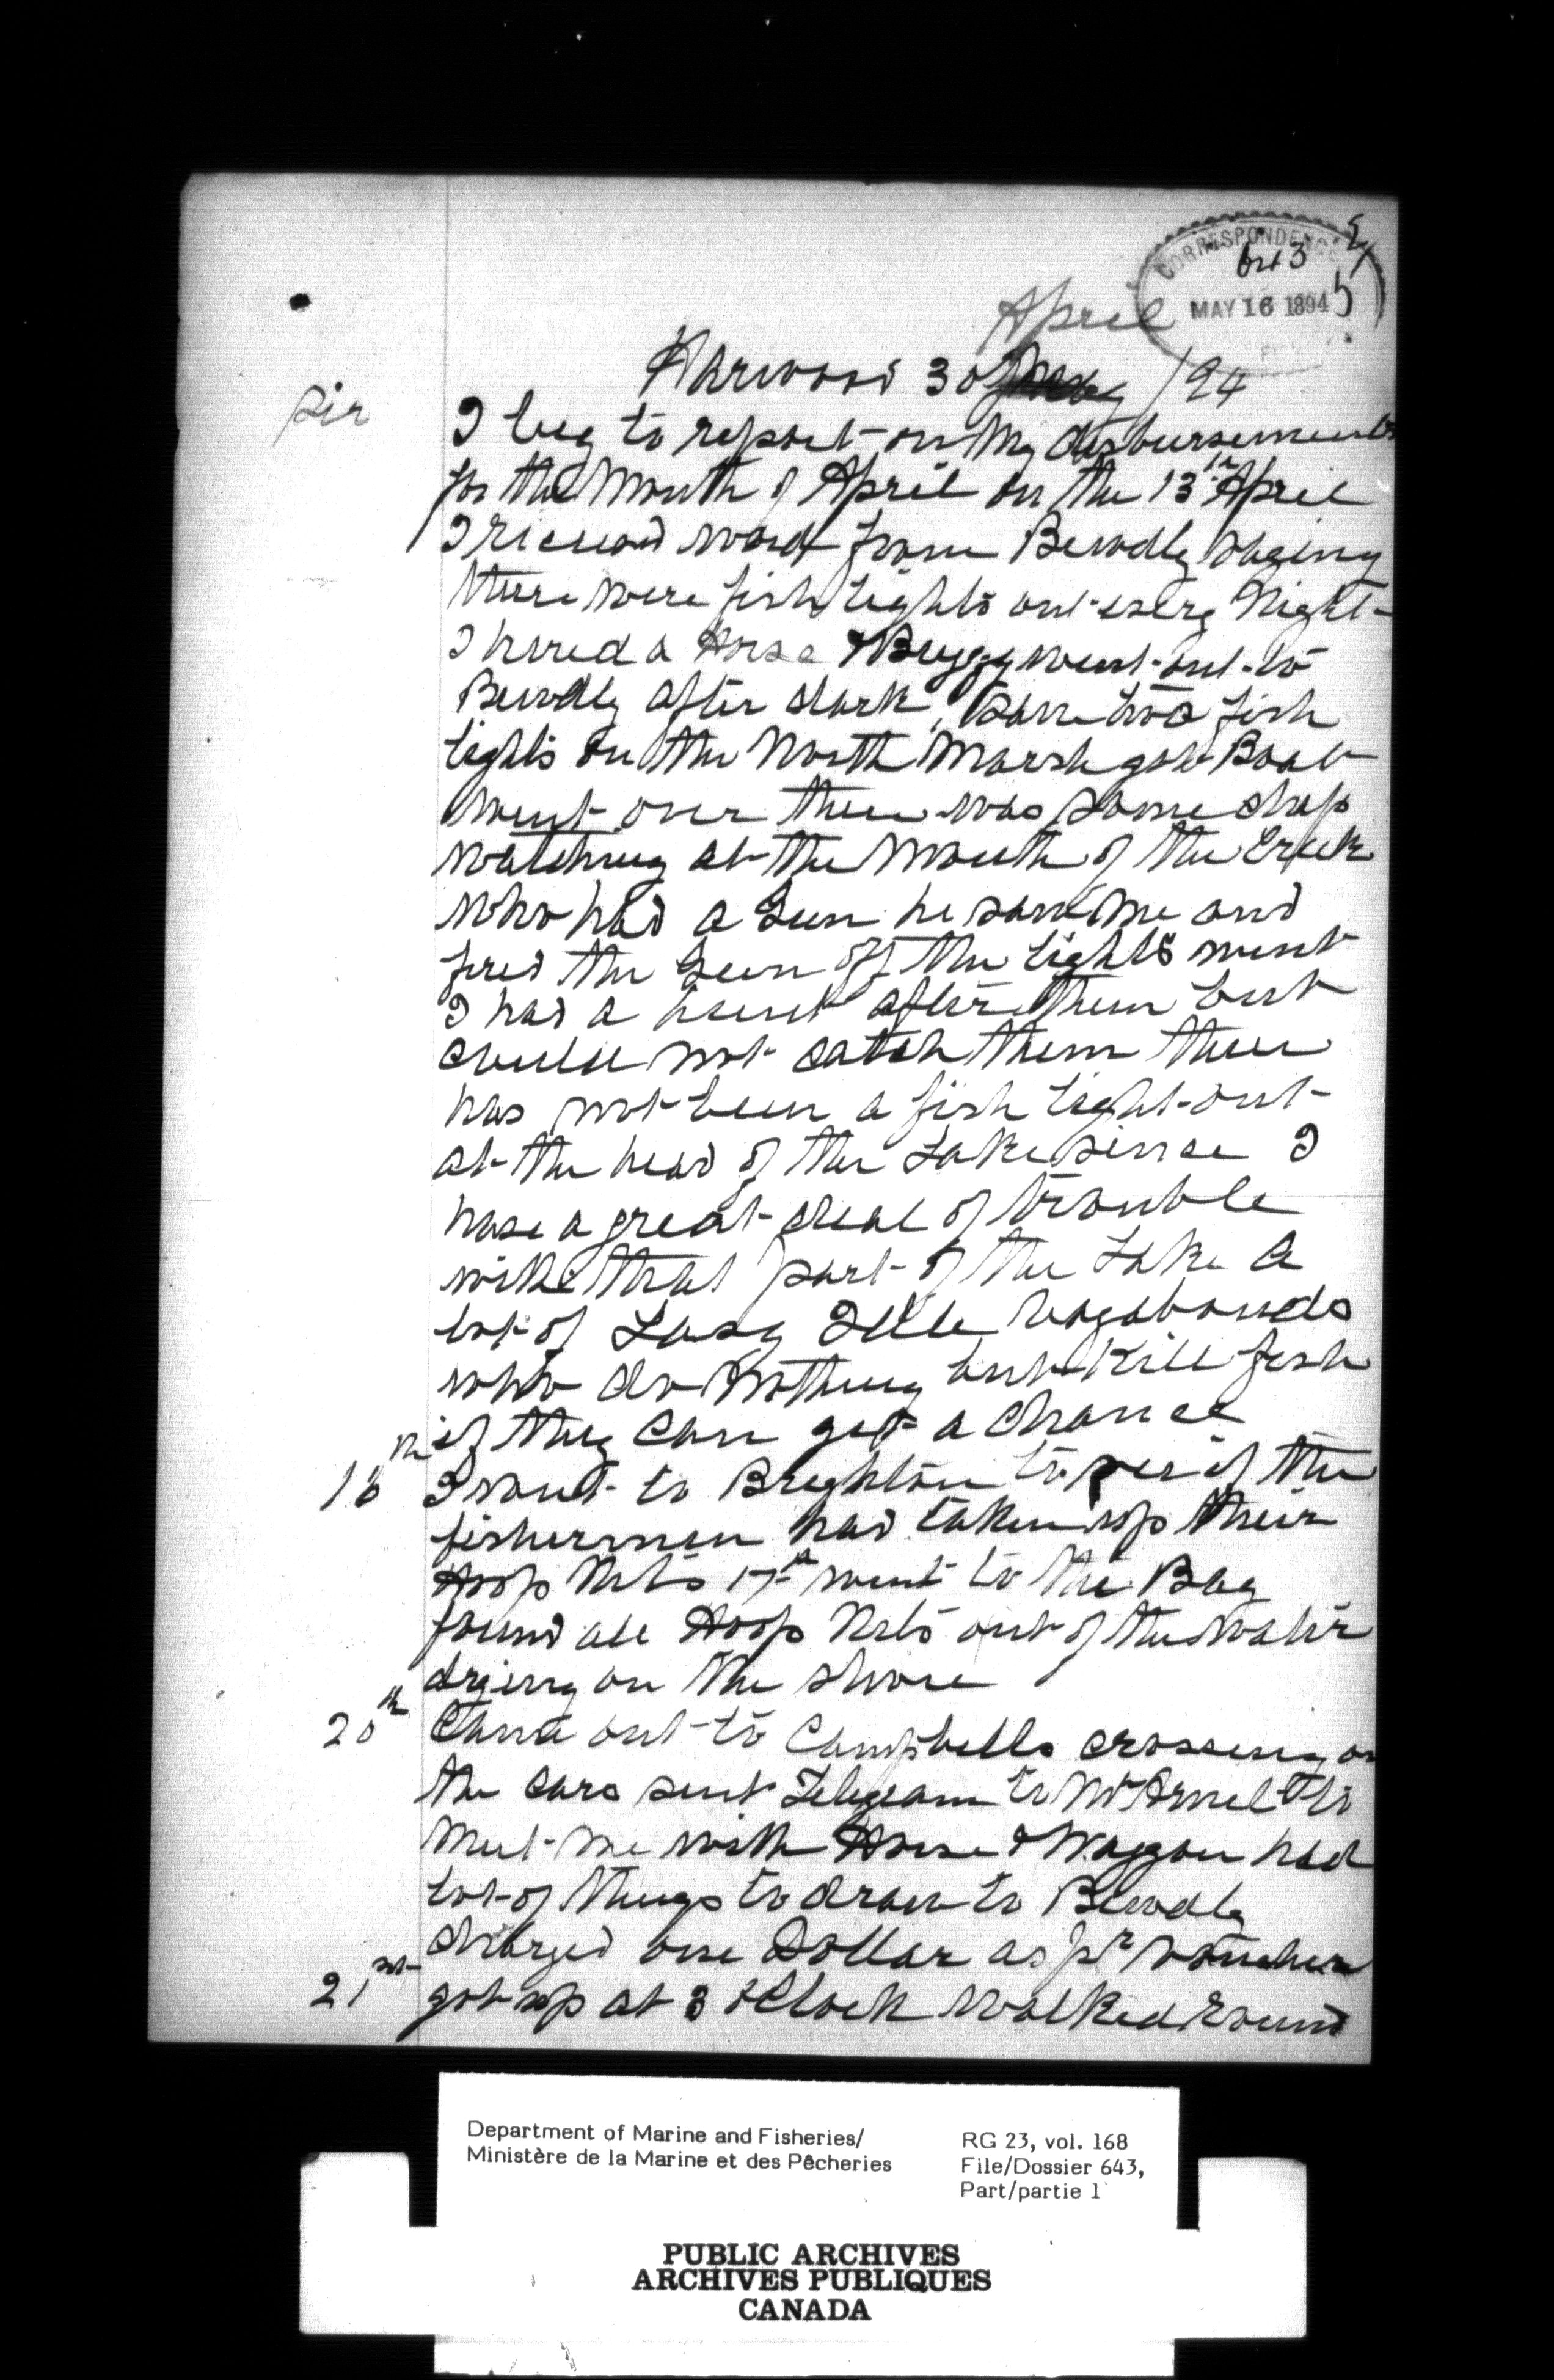 CORRESPONDENCE
643
MAY 16 1894
5
April
Harwood 30 May /94
Sir
I beg to report on My disbursements
for the Month of April on the 13th April
I recieved word from Bewdly Saying
there were fish lights out every Night
I hired a Horse & Buggy went out to
Bewdly after dark, Saw two fish
lights on the North Marsh got Boat
went over there was some chap
watching at the Mouth of the Creek
who had a Gun he saw me and
fired the Gun off the lights went
I had a hunt after them but
could not catch them there
has not been a fish light out
at the head of the Lake since I
have a great deal of trouble
with that part of the Lake a
lot of Lasy Idle Vagabonds
who do Nothing but Kill fish
if they can get a chance
16th I went to Brighton to see if the
fishermen had taken up their
Hoop Nets 17th went to the Bay
found all Hoop Nets out of the water
drying on the shore
20th Came out to Campbells crossing on
the cars sent Telegram to to
Meet me with Horse & Waggon had
lot of things to draw to Bewdly
charged one Dollar as pr voucher
21st got up at 3 oClock walked round
Department of Marine and Fisheries/
Ministère de la Marine et des Pêcheries
RG 23, vol. 168
File/Dossier 643,
Part/partie 1
PUBLIC ARCHIVES
ARCHIVES PUBLIQUES
CANADA